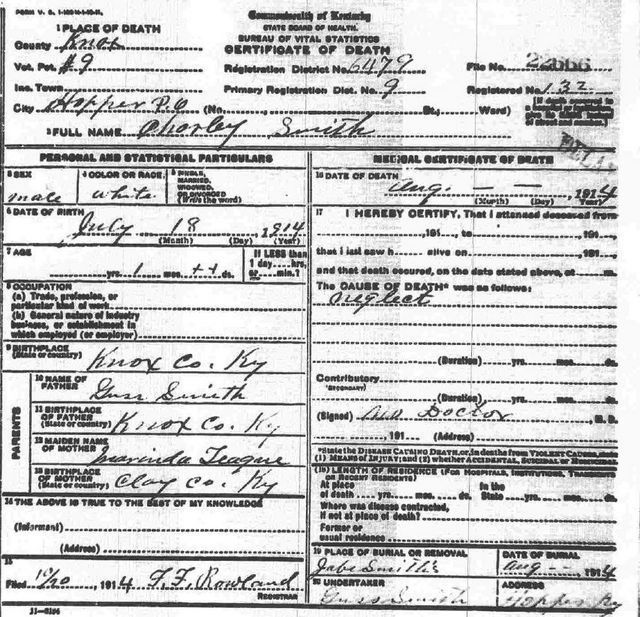 Commonwealth of Kentucky
STATE BOARD OF HEALTH.
BUREAU OF VITAL STATISTICS
CERTIFICATE OF DEATH
1 PLACE OF DEATH
County Knox
Vot. Pct. #9
Registration District No. 6479
File No. 22666
Inc. Town
Primary Registration Dist. No. 9
Registered No. 132
City Hopper P.O (No. St., Ward)
[If death occurred in a hospital or institution give its NAME instead of street and number.]
2 FULL NAME Charley Smith
PERSONAL AND STATISTICAL PARTICULARS
3 SEX
male
4 COLOR OR RACE
white
5 SINGLE, MARRIED, WIDOWED, OR DIVORCED
(Write the word)
6 DATE OF BIRTH
July 18, 1914
(Month) (Day) (Year)
7 AGE
yrs. 1 mos. ds.
If LESS than 1 day hrs. or min.?
8 OCCUPATION
(a) Trade, profession, or particular kind of work
(b) General nature of industry business, or establishment in which employed (or employer)
9 BIRTHPLACE
(State or country)
Knox Co. Ky
PARENTS
10 NAME OF FATHER
Guss Smith
11 BIRTHPLACE OF FATHER
(State or country)
Knox Co. Ky
12 MAIDEN NAME OF MOTHER
Teague
13 BIRTHPLACE OF MOTHER
(State or country)
Clay Co. Ky
14 THE ABOVE IS TRUE TO THE BEST OF MY KNOWLEDGE
(Informant)
(Address)
15
Filed 10/20, 1914 F. F. Rowland
REGISTRAR
MEDICAL CERTIFICATE OF DEATH
16 DATE OF DEATH
Aug. — 1914
(Month) (Day) (Year)
17 I HEREBY CERTIFY, That I attended deceased from
, 191 , to , 191 ,
that I last saw h alive on , 191 ,
and that death occured, on the date stated above, at m.
The CAUSE OF DEATH* was as follows:
neglect
(Duration) yrs. mos. ds.
Contributory
(SECONDARY)
(Duration) yrs. mos. ds.
(Signed) Doctor, M. D.
, 191 (Address)
*State the DISEASE CAUSING DEATH, or, in deaths from VIOLENT CAUSES, state (1) MEANS OF INJURY; and (2) whether ACCIDENTAL, SUICIDAL or HOMICIDAL
18 LENGTH OF RESIDENCE (FOR HOSPITALS, INSTITUTIONS, TRANSIENTS OR RECENT RESIDENTS)
At place of death yrs. mos. ds. In the State yrs. mos. ds.
Where was disease contracted, if not at place of death?
Former or usual residence
19 PLACE OF BURIAL OR REMOVAL
Smith's
DATE OF BURIAL
Aug — 1914
20 UNDERTAKER
Guss Smith
ADDRESS
Hopper Ky
11—3184